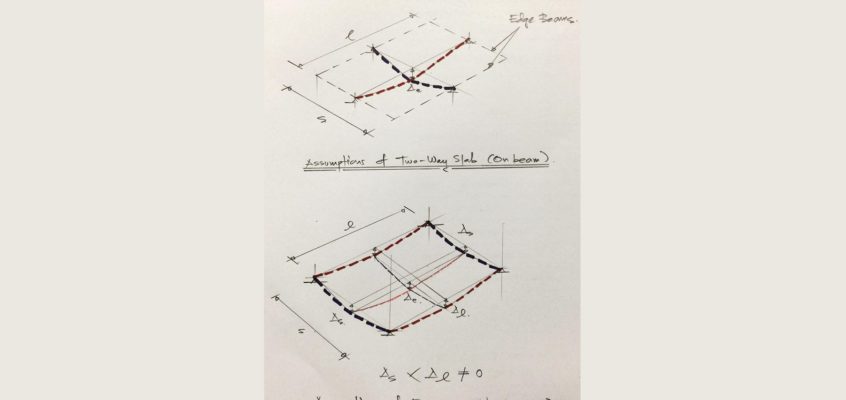 Edge Beams.
l
Δc
s
Assumptions of Two-Way Slab (On beam)
l
Δs
Δc.
Δs.
Δl.
s
Δs < Δl ≠ 0